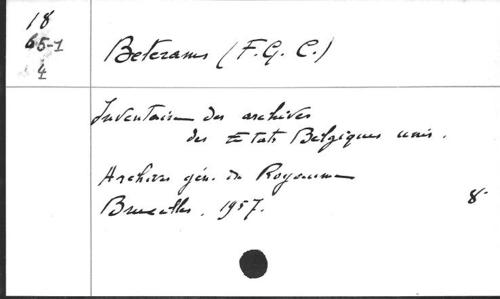 18
65-1
4
Beterams (F.G.C.)
Inventaire des archives
des Etats Belgiques unis.
Archives gén. du Royaume
Bruxelles. 1957.
8°